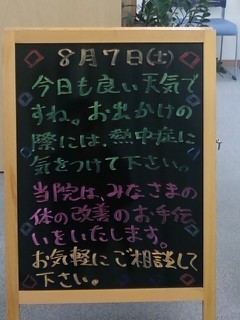 8月7日(土)
今日も良い天気で
すね。お出かけの
際には、熱中症に
気をつけて下さい。
当院は、みなさまの
体の改善のお手伝
いをいたします。
お気軽にご相談して
下さい。